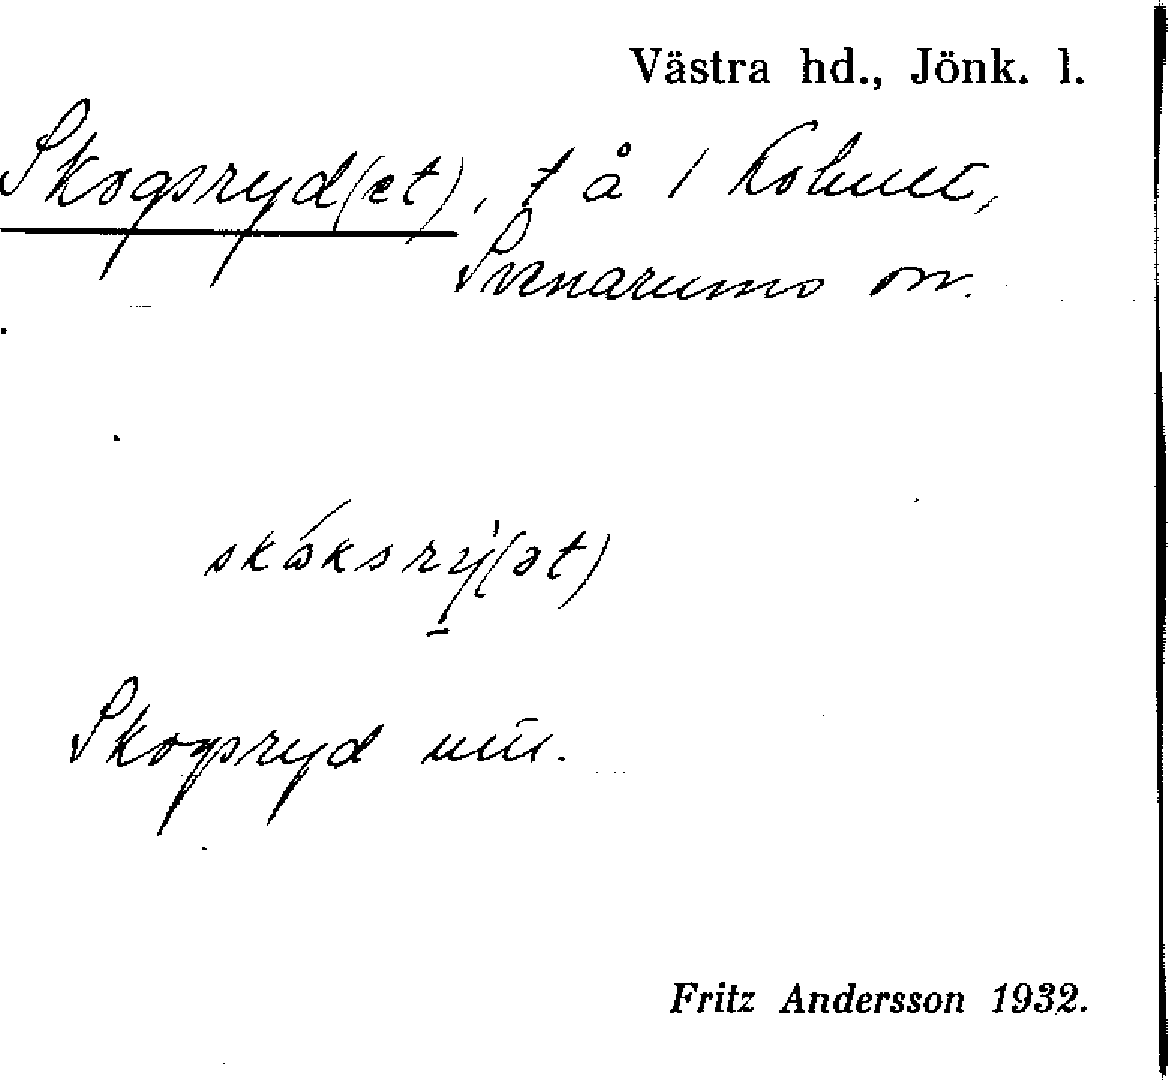 Västra hd., Jönk. l.
Skogsryd(et), t å 1 Kohult,
Svenarums sn.
skáksrý(ət)
Skogsryd
Fritz Andersson 1932.